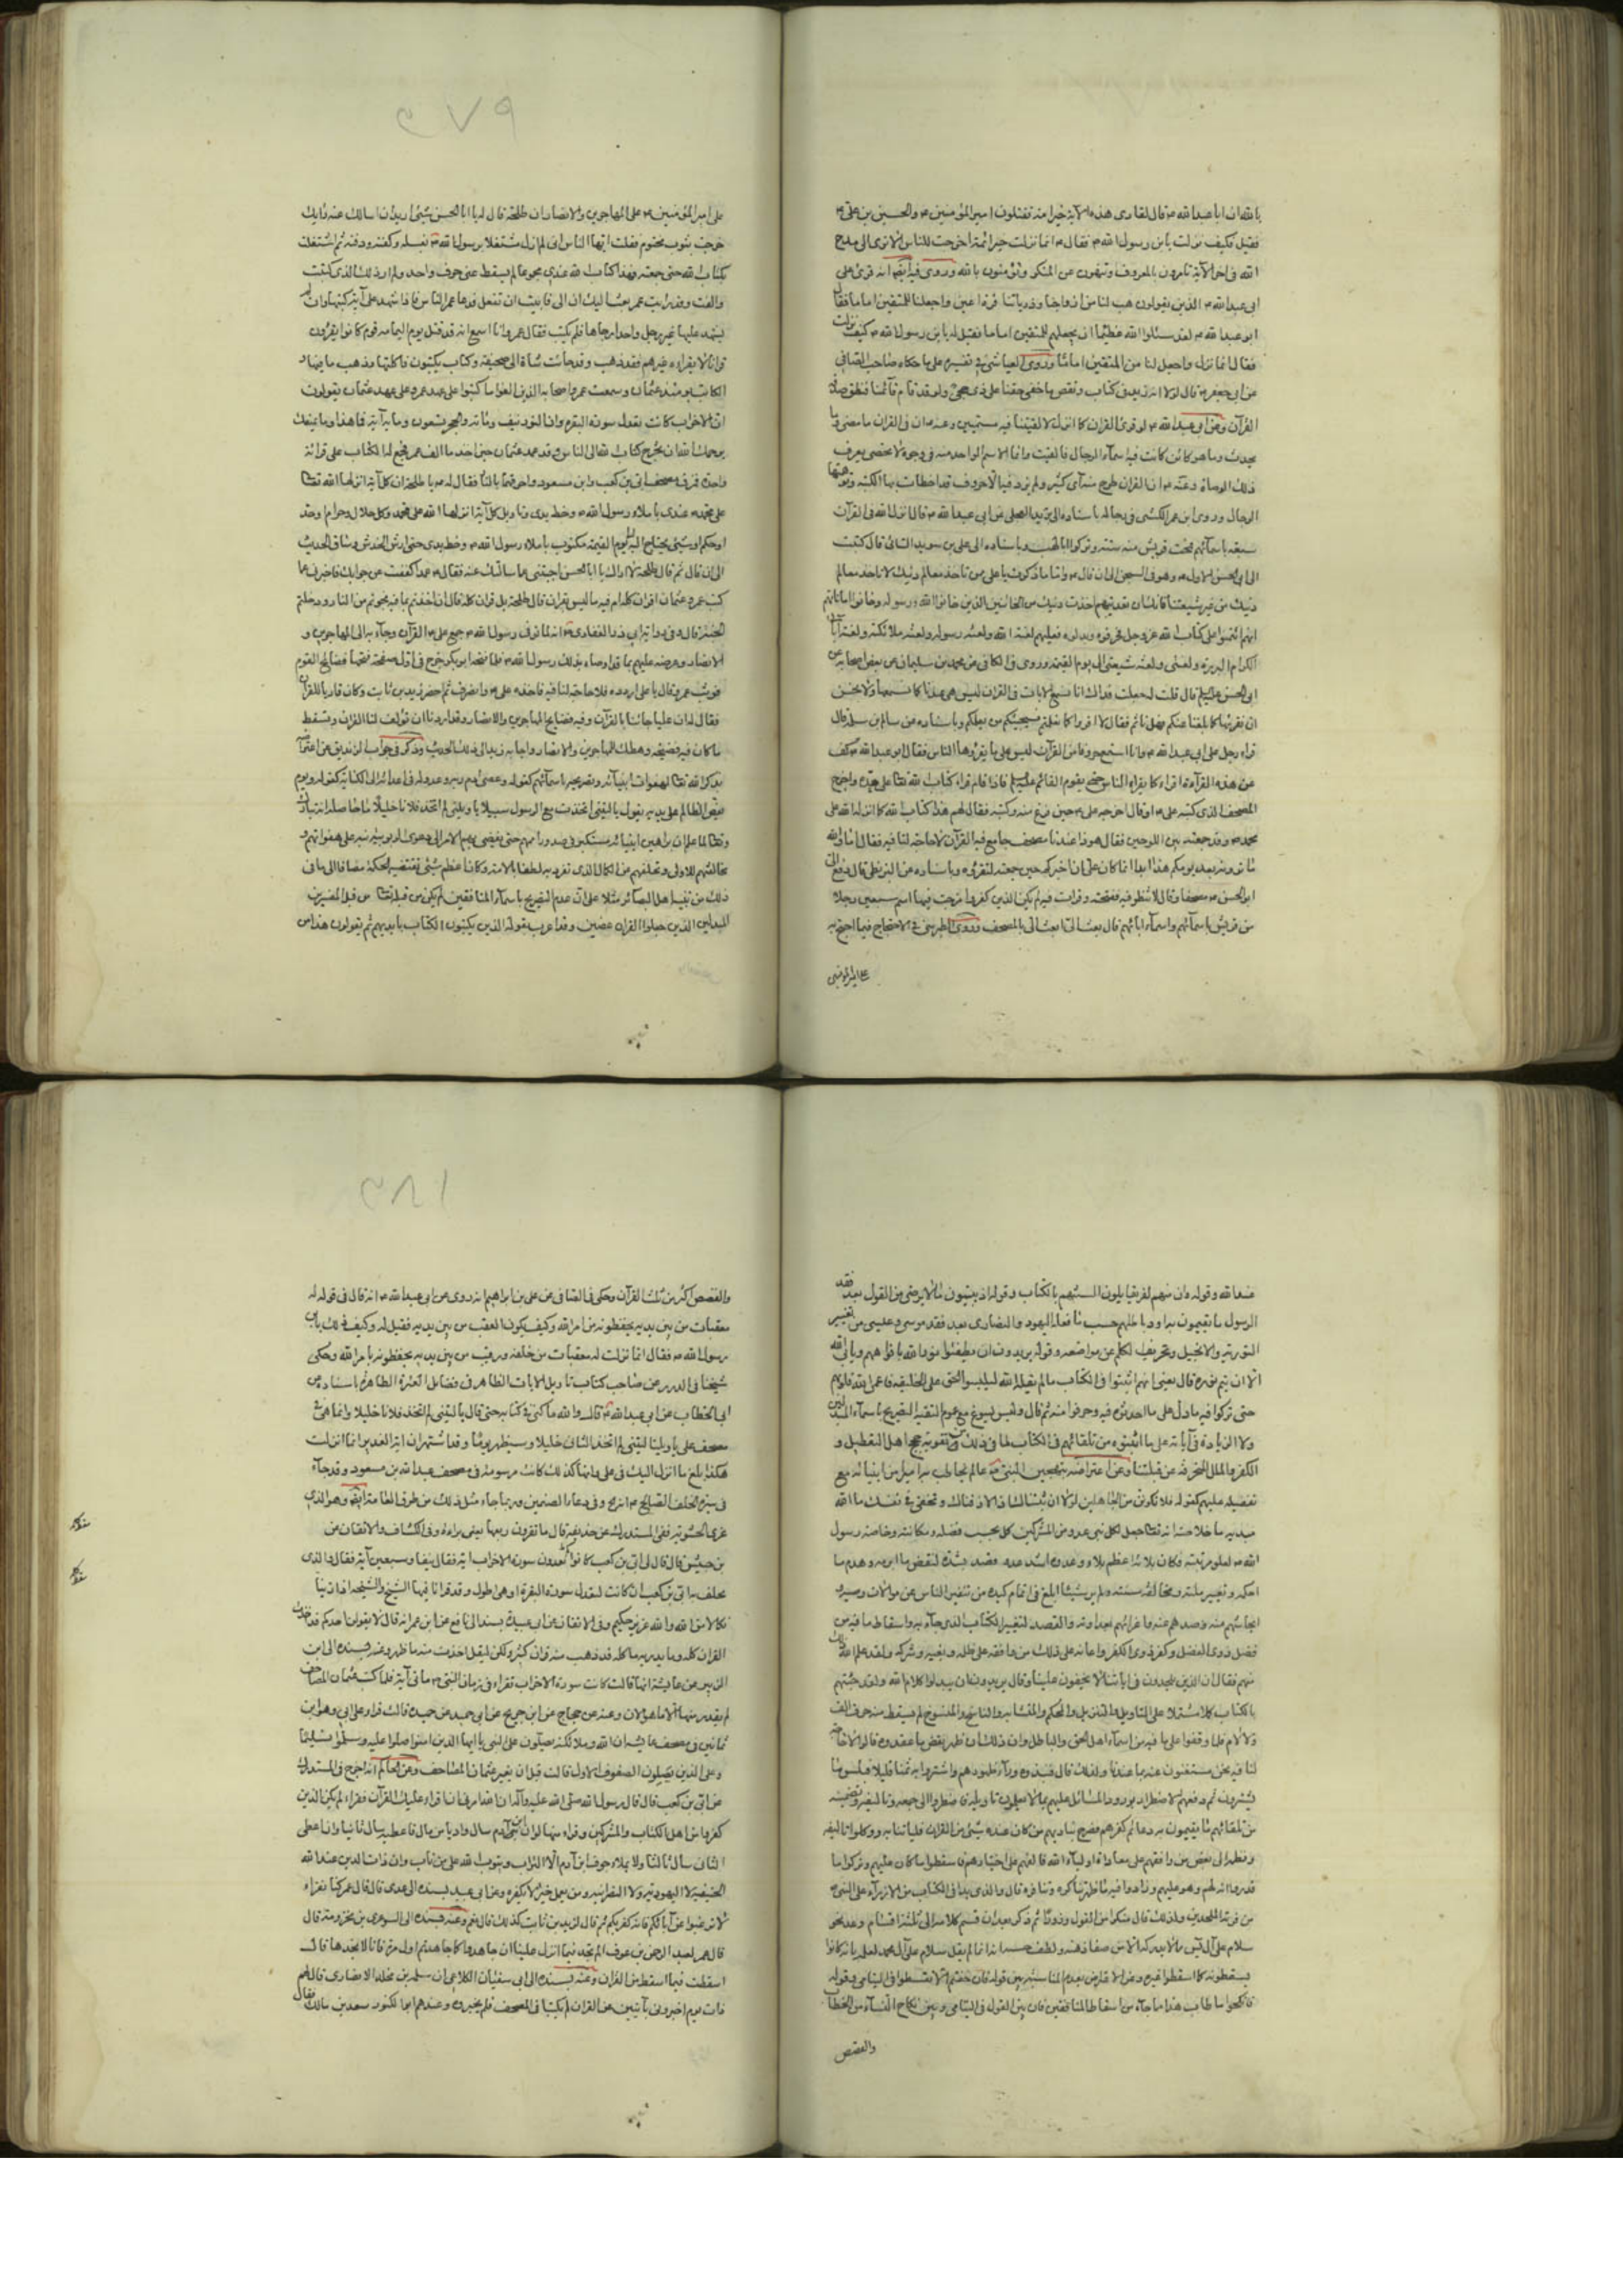 بالله ان ابا عبد الله ع قال لقارى هذه الآية خير امة تقتلون امير المؤمنين ع والحسين بن على ع
فقيل فكيف نزلت يابن رسول الله ع فقال ع انما نزلت خير ائمة اخرجت للناس الا ترى الى مدح
الله فى اخر الآية تأمرون بالمعروف وتنهون عن المنكر وتؤمنون بالله وروى فيه ايضا انه قرئ على
ابى عبد الله ع الذين يقولون هب لنا من ازواجنا وذرياتنا قرة اعين واجعلنا للمتقين اماما فقال
ابو عبد الله ع لقد سئلوا الله عظيما ان يجعلهم للمتقين اماما فقيل له يابن رسول الله ع كيف نزلت
فقال انما نزل واجعل لنا من المتقين اماما وروى العياشى فى تفسيره على ما حكاه صاحب الصافى
عن ابى جعفر ع قال لولا انه زيد فى كتاب ونقص ما خفى حقنا على ذى حجى ولو قد قام قائمنا فنطق صدقه
القرآن وعن ابى عبد الله ع لو قرئ القران كما انزل لالفيتنا فيه مسمين وعنه ع ان فى القران ما مضى وما
يحدث وما هو كائن كانت فيه اسماء الرجال فالقيت وانما الاسم الواحد منه فى وجوه لا تحصى يعرف
ذلك الوصاة وعنه ع ان القران طرح منه آى كثير ولم يزد فيه الا حروف قد اخطات بها الكتبة وتوهمتها
الرجال وروى ابن عمر الكشى فى رجاله باسناده الى بريد العجلى عن ابى عبد الله ع قال انزل الله فى القرآن
سبعة باسمائهم فمحت قريش منه ستة وتركوا ابا لهب وباسناده الى على بن سويد السائى قال كتبت
الى ابى الحسن الاول ع وهو فى السجن الى ان قال ع واما ما ذكرت يا على من تاخذ معالم دينك لا تاخذ معالم
دينك من غير شيعتنا فانك ان تعديتهم اخذت دينك من الخائنين الذين خانوا الله ورسوله وخانوا اماناتهم
انهم ائتمنوا على كتاب الله عز وجل فحرفوه وبدلوه فعليهم لعنة الله ولعنة رسوله ولعنة ملائكته ولعنة آبائى
الكرام البررة ولعنتى ولعنة شيعتى الى يوم القيمة وروى فى الكافى عن محمد بن سليمان عن بعض اصحابه عن
ابى الحسن عليه السلم قال قلت له جعلت فداك انا نسمع الآيات فى القران ليس هى عندنا كما نسمعها ولا نحسن
ان نقرئها كما بلغنا عنكم فهل ناثم فقال لا اقرؤا كما تعلمتم فسيجيئكم من يعلمكم وباسناده عن سالم بن سلمة قال
قراء رجل على ابى عبد الله ع وانا استمع حروفا من القرآن ليس على ما يقرؤها الناس فقال ابو عبد الله ع كف
عن هذه القراءة اقرا كما يقراء الناس حتى يقوم القائم عليه السلم فاذا قام قراء كتاب الله تعالى على حده واخرج
المصحف الذى كتبه على ع وقال اخرجه على ع حين فرغ منه وكتبه فقال لهم هذا كتاب الله كما انزله الله على
محمد ص وقد جمعته بين اللوحين فقال هو ذا عندنا مصحف جامع فيه القرآن لا حاجة لنا فيه فقال اما والله
ما ترونه بعد يومكم هذا ابدا انما كان على ان اخبركم حين جمعته لتقرؤه وباسناده عن البزنطى قال دفع الى
ابو الحسن ع مصحفا وقال لا تنظر فيه ففتحته وقرات فيه لم يكن الذين كفروا فوجدت فيها اسم سبعين رجلا
من قريش باسمائهم واسماء ابائهم قال فبعث الى ابعث الى بالمصحف وروى الطبرسى فى الاحتجاج فيما احتج به
على امير المؤمنين
على امير المؤمنين ع على المهاجرين والانصار ان طلحة قال له يا ابا الحسن شئ اريد ان اسالك عنه رايتك
خرجت بثوب مختوم فقلت ايها الناس انى لم ازل مشتغلا برسول الله ص بغسله وكفنه ودفنه ثم اشتغلت
بكتاب الله حتى جمعته فهذا كتاب الله عندى مجموعا لم يسقط عنى حرف واحد ولم ار ذلك الذى كتبت
والفت وقد رايت عمر بعث اليك ان ابعث به الى فابيت ان تفعل فدعا عمر الناس فاذا شهد على آية كتبها وان لم
يشهد عليها غير رجل واحد ارجاها فلم يكتب فقال عمر وانا اسمع انه قد قتل يوم اليمامة قوم كانوا يقرؤن
قرانا لا يقراءه غيرهم فقد ذهب وقد جائت شاة الى صحيفة وكتاب يكتبون فاكلتها وذهب ما فيها و
الكاتب يومئذ عثمان وسمعت عمر واصحابه الذين الفوا ما كتبوا على عهد عمر وعلى عهد عثمان يقولون
ان الاحزاب كانت تعدل سورة البقرة وان النور نيف ومائة والحجر تسعون ومائة آية فما هذا وما يمنعك
يرحمك الله ان تخرج كتاب الله الى الناس وقد عهد عثمان حين اخذ ما الف عمر فجمع له الكتاب على قرائة
واحدة فمزق مصحف ابى بن كعب وابن مسعود واحرقهما بالنار فقال له ع يا طلحة ان كل آية انزلها الله تعالى
على محمد ص عندى باملاء رسول الله ص وخط يدى وتاويل كل آية انزلها الله على محمد وكل حلال وحرام او حد
او حكم او شئ يحتاج اليه الى يوم القيمة مكتوب باملاء رسول الله ص وخط يدى حتى ارش الخدش وساق الحديث
الى ان قال ثم قال طلحة لا اراك يا ابا الحسن اجبتنى عما سالتك عنه فقال ع عمدا كففت عن جوابك فاخبرنى عما
كتب عمر وعثمان اقران كله ام فيه ما ليس بقران قال طلحة بل قران كله قال ان اخذتم بما فيه نجوتم من النار ودخلتم
الجنة قال وفى رواية ابى ذر الغفارى انه لما توفى رسول الله ص جمع على ع القرآن وجاء به الى المهاجرين و
الانصار وعرضه عليهم بما قد اوصاه بذلك رسول الله ص فلما فتحه ابو بكر خرج فى اول صفحة فتحها فضائح القوم
فوثب عمر وقال يا على اردده فلا حاجة لنا فيه فاخذه على ع وانصرف ثم احضر زيد بن ثابت وكان قاريا للقران
فقال له ان عليا جائنا بالقرآن وفيه فضايح المهاجرين والانصار وقد اردنا ان تؤلف لنا القران وتسقط
ما كان فيه فضيحة وهتك للمهاجرين والانصار واجابه زيد الى ذلك الحديث وذكر فى جواب الزنديق عن
بذكر الله تعالى لهفوات انبيائه وتصريحه باسمائهم كقوله وعصى ادم ربه وعدوله فى اعدائه الى الكناية كقوله ويوم
يعض الظالم على يديه يقول يا ليتنى اتخذت مع الرسول سبيلا يا ويلتى ليتنى لم اتخذ فلانا خليلا ما حاصله انه تبارك
وتعالى لما علم ان براهين انبيائه ستكبر فى صدور اممهم حتى يفضى بهم الامر الى دعوى الربوبية نبه على هفواتهم و
مخالفتهم للاولى وتخلفهم من الكمال الذى تفرد به لطفا بالامة وكان اعظم شئ تقتضيه الحكمة مضافا الى ما فى
ذلك من تنبيه اهل البصائر مثلا على ان عدم التصريح باسماء المنافقين لم يكن من قبله تعالى من قبل المغيرين
المبدلين الذين جعلوا القران عضين وقد اعرب بقوله الذين يكتبون الكتاب بايديهم ثم يقولون هذا من
عند الله وقوله وان منهم لفريقا يلون السنتهم بالكتاب وقوله اذ يبيتون ما لا يرضى من القول بعد فقد
الرسول ما يقيمون به اود باطلهم حسب ما فعله اليهود والنصارى بعد فقد موسى وعيسى من تغيير
التورية والانجيل وتحريف الكلم عن مواضعه وقوله يريدون ان يطفئوا نور الله بافواههم ويابى الله
الا ان يتم نوره قال يعنى انهم اثبتوا فى الكتاب ما لم يقله الله ليلبسوا الحق على الخليقة فاعمى الله قلوبهم
حتى تركوا فيه ما دل على ما احدثوه فيه وحرفوا منه ثم قال وليس يسوغ مع عموم التقية التصريح باسماء المبدلين
ولا الزيادة فى آياته على ما اثبتوه من تلقائهم فى الكتاب لما فى ذلك من تقوية حجج اهل التعطيل و
الكفر والملل المنحرفة عن قبلتنا وعن اعتراضه بتهجين النبى ص
تفضيله عليهم كقوله فلا تكونن من الجاهلين لولا ان ثبتناك اذا لاذقناك وتخفى فى نفسك ما الله
مبديه ما خلاصته انه تعالى جعل لكل نبى عدو من المشركين كل بحسب فضله ومكانته وخاصة رسول
الله ص لعلو مرتبته فكان بلائه اعظم بلاء وعدوه اشد عدو فصد بشده لنقض ما ابرمه وهدم ما
احكمه وتغيير ملته ومخالفة سنته ولم ير شيئا ابلغ فى اتمام كيده من تنفير الناس عن موالات وصيه و
ايحاشهم منه وصدهم عنه واغرائهم بعداوته والقصد لتغيير الكتاب الذى جآء به واسقاط ما فيه من
فضل ذوى الفضل وكفر ذوى الكفر واعانه على ذلك من وافقه على ظلمه وبغيه وشركه ولقد علم الله ذلك
منهم فقال ان الذين يلحدون فى اياتنا لا يخفون علينا وقال يريدون ان يبدلوا كلام الله ولقد جئتهم
بالكتاب كلا مشتملا على التاويل والتنزيل والمحكم والمتشابه والناسخ والمنسوخ لم يسقط منه حرف الف
ولا لام فلما وقفوا على ما فيه من اسماء اهل الحق والباطل وان ذلك ان ظهر نقض ما عقدوه قالوا لا حاجة
لنا فيه نحن مستغنون عنه بما عندنا ولذلك قال فنبذوه وراء ظهورهم واشتروا به ثمنا قليلا فبئس ما
يشترون ثم دفعهم الاضطرار بورود المسائل عليهم بما لا يعلمون تاويله فاضطروا الى جمعه وتاليفه وتضمينه
من تلقائهم ما يقيمون به دعائم كفرهم فصرح مناديهم من كان عنده شئ من القران فلياتنا به ووكلوا تاليفه
ونظمه الى بعض من وافقهم على معاداة اولياء الله فالفه على اختيارهم فاسقطوا ما كان عليهم وتركوا ما
قدروا انه لهم وهو عليهم وزادوا فيه ما ظهر تناكره وتنافره قال والذى بدا فى الكتاب من الازراء على النبى ص
من فرية الملحدين ولذلك قال منكرا من القول وزورا ثم ذكر بعد ان قسم كلامه الى ثلثة اقسام وعد نحو
سلام على آل يس
يسقطونه كما اسقطوا غيره وعن بعدم المناسبة بين قوله فان خفتم الا تقسطوا فى اليتامى وقوله
فانكحوا ما طاب هذا ما جاء من اسقاط المنافقين فان بين القول فى اليتامى وبين نكاح النساء من الخطاب
والقصص
والقصص اكثر من ثلث القرآن وحكى فى الصافى عن على بن ابراهيم انه روى عن ابى عبد الله ع انه قال فى قوله له
معقبات من بين يديه يحفظونه من امر الله وكيف يكون المعقب من بين يديه فقيل له وكيف ذلك يابن
رسول الله ص فقال انما نزلت له معقبات من خلفه ورقيب من بين يديه يحفظونه بامر الله وحكى
شيخنا فى الدرر عن صاحب كتاب تاويل الايات الظاهرة فى فضائل العترة الطاهرة باسناده عن
ابى الخطاب عن ابى عبد الله ع قال والله ما كنى فى كتابه حتى قال يا ليتنى لم اتخذ فلانا خليلا وانما هى فى
مصحف على يا ويلتا ليتنى لم اتخذ الثانى خليلا وسيظهر يوما وقد اشتهر ان آية الغدير انما انزلت
هكذا بلغ ما انزل اليك فى على وانها كذلك كانت مرسومة فى مصحف عبد الله بن مسعود وقد جآء
وفى دعاء الصنمين وربما جاء مثل ذلك من طرق العامة ايضا وهو الذى
غرى الحشوية ففى المستدرك عن حذيفة قال ما تقرون ربعها يعنى براءة وفى الكشاف والاتقان عن
بن حبيش قال قال لى ابى بن كعب كم كانوا تعدون سورة الاحزاب آية فقال نيفا وسبعين آية فقال والذى
يحلف به ابى بن كعب ان كانت لتعدل سورة البقرة او هى اطول وقد قرانا فيها الشيخ والشيخة اذا زنيا
نكالا من الله والله عزيز حكيم وفى الاتقان عن ابى عبيدة بسنده الى نافع عن ابن عمر انه قال لا يقولن احدكم قد اخذت
القران كله وما يدريه ما كله قد ذهب منه قران كثير ولكن ليقل اخذت منه ما ظهر وعنه بسنده الى ابن
الزبير عن عايشة انها قالت كانت سورة الاحزاب تقراء فى زمان النبى ص مائتى آية فلما كتب عثمان المصاحف
لم يقدر منها الا ما هو الان وعنه عن حجاج عن ابن جريح عن ابى حميد عن حميدة قالت قراء على ابى وهو ابن
ثمانين فى مصحف عايشة ان الله وملائكته يصلون على النبى يا ايها الذين امنوا صلوا عليه وسلموا تسليما
وعلى الذين يصلون الصفوف الاول قالت قبل ان يغير عثمان المصاحف وعن الحاكم انه اخرج فى المستدرك
عن ابى بن كعب قال قال رسول الله صلى الله عليه وآله ان الله امرنى ان اقراء عليك القرآن فقراء لم يكن الذين
كفروا من اهل الكتاب والمشركين وقراء منها لو ان ابن آدم سال واديا من مال فاعطيه سال ثانيا وان اعطى
الثانى سال ثالثا ولا يملاء جوف ابن آدم الا التراب ويتوب الله على من تاب وان ذات الدين عند الله
الحنيفية لا اليهودية ولا النصرانية ومن يعمل خيرا لن يكفره وعن ابى عبيد بسنده الى عدى قال قال عمر كنا نقراء
لا ترغبوا عن آبائكم فانه كفر بكم ثم قال لزيد بن ثابت كذلك قال نعم وعنه بسنده الى المسور بن مخرمة قال
قال عمر لعبد الرحمن بن عوف الم تجد فيما انزل علينا ان جاهدوا كما جاهدتم اول مرة فانا لا نجدها قال
اسقطت فيما اسقط من القران وعنه بسنده الى ابى سفيان الكلاعى ان سلمة بن مخلد الانصارى قال لهم
ذات يوم اخبرونى بآيتين من القران لم يكتبا فى المصحف فلم يخبروه وعندهم ابو الكنود سعد بن مالك فقال